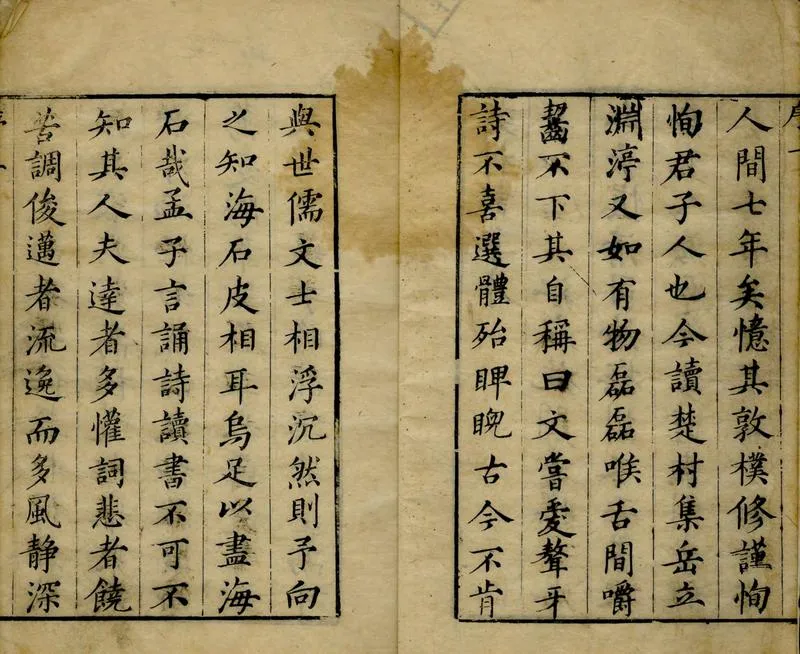 人間七年矣憶其敦樸修謹恂
恂君子人也今讀楚村集岳立
淵渟又如有物磊磊喉舌間嚼
齧不下其自稱曰文嘗愛聱牙
詩不喜選體殆睥睨古今不肯
與世儒文士相浮沉然則予向
之知海石皮相耳烏足以盡海
石哉孟子言誦詩讀書不可不
知其人夫達者多懽詞悲者饒
苦調俊邁者流逸而多風静深